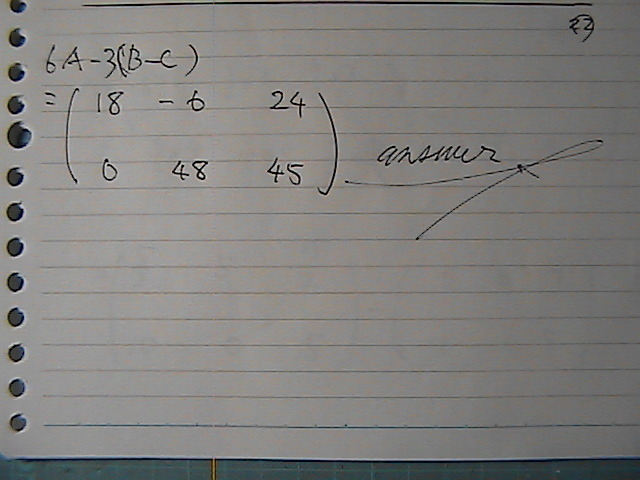 6A-3(B-C)
= ( 18 -6 24
0 48 45 ) answer